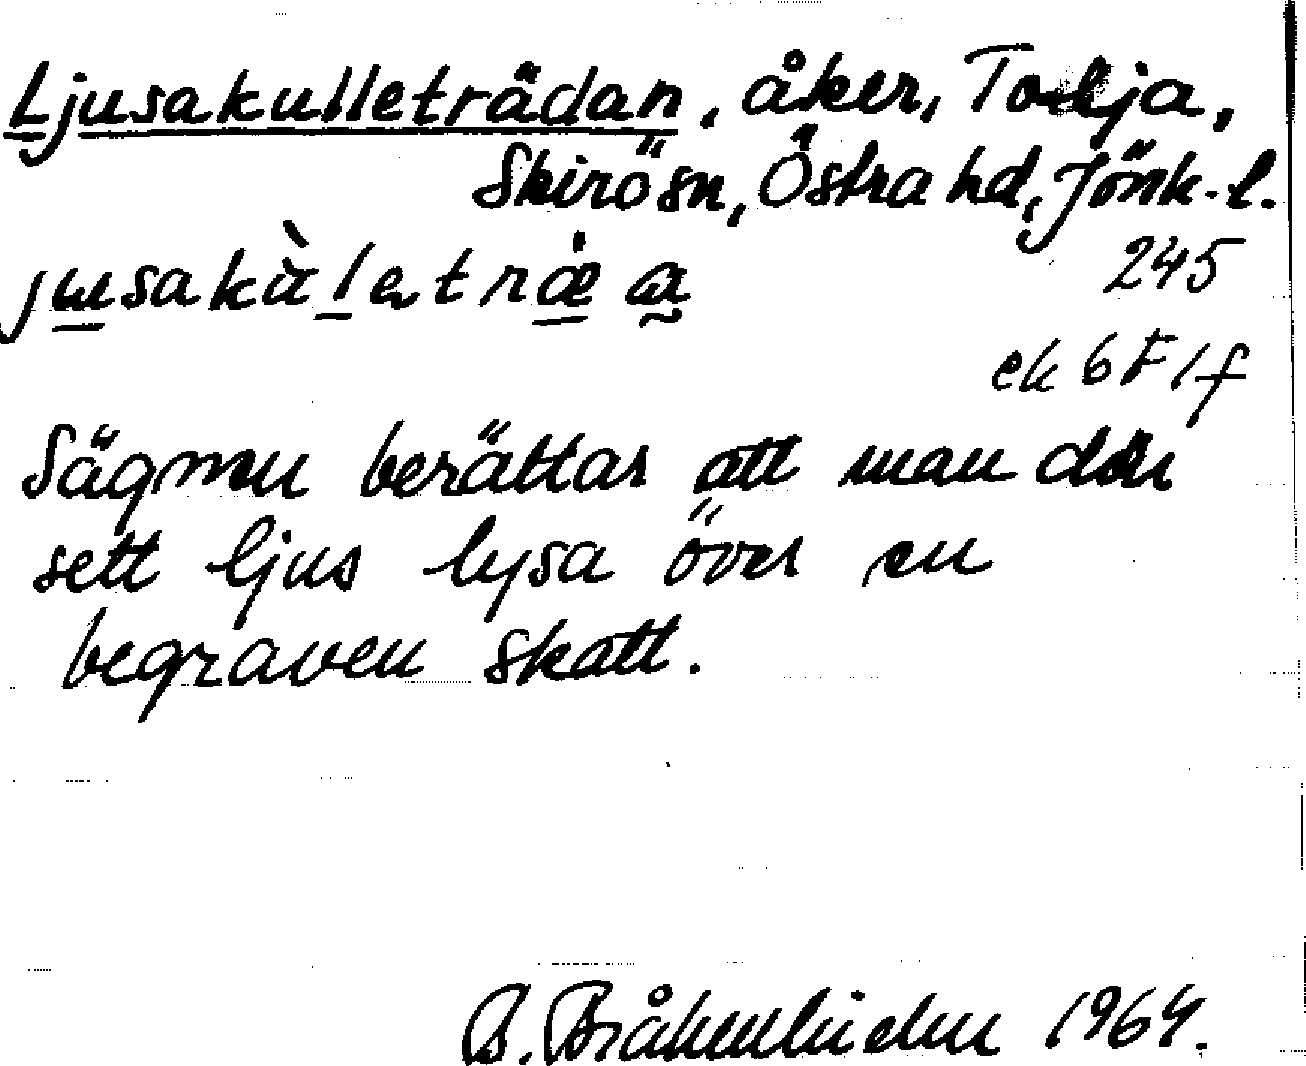 Ljusakulleträdan, åker, Tolja,
Skirö sn, Östra hd, Jönk. l.
245
ek 6 F 1f
Sägnen berättar att man där
sett ljus lysa över en
begraven skatt.
B. 1964.